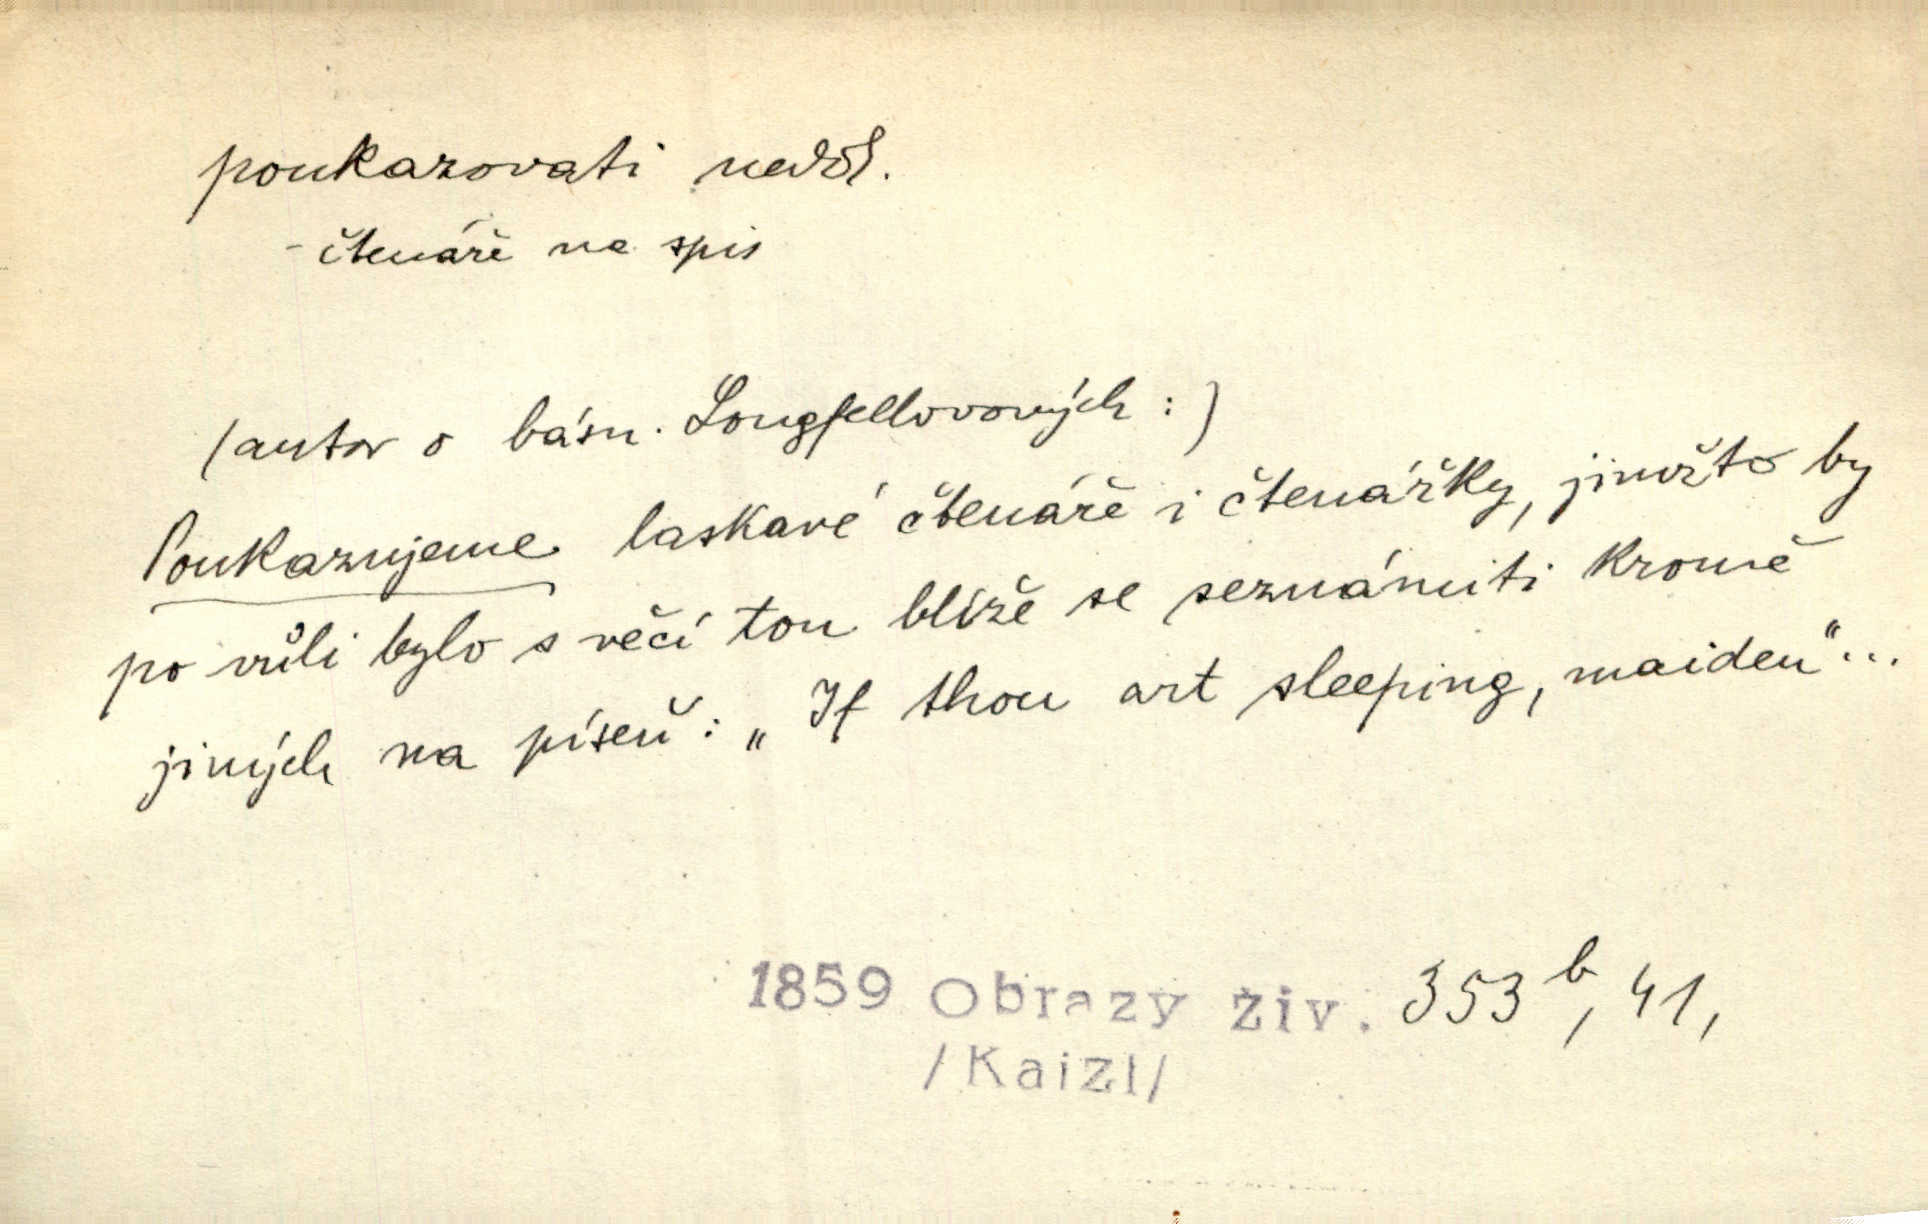 poukazovati nedok.
- čtenáře na spis
(autor o básn. Longfellovových :)
Poukazujeme laskavé čtenáře i čtenářky, jimžto by
po vůli bylo s věcí tou blíže se seznámiti kromě
jiných na píseň: „If thou art sleeping, maiden“...
1859 Obrazy živ. 353 b, 41,
/Kaizl/